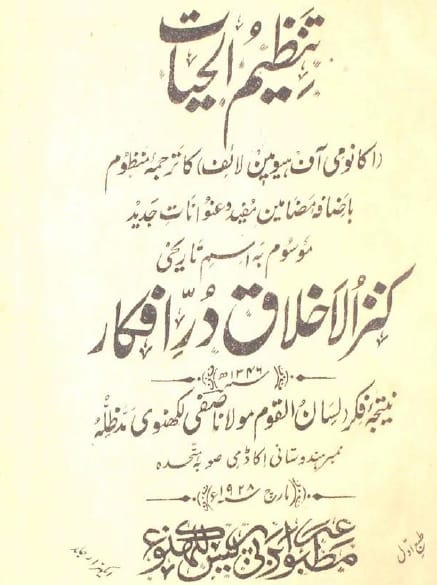 تنظیم الحیات
(اکانومی آف ہیومن لائف) کا ترجمۂ منظوم
باضافہ مضامین مفید و عنوانات جدید
موسوم بہ اسم تاریخی
کنز الاخلاق دُرِّ افکار
سنہ ۱۳۴۶ھ
نتیجۂ فکر لسان القوم مولانا صفی لکھنوی مدظلہٗ
ممبر ہندوستانی اکاڈمی صوبہ متحدہ
مارچ سنہ ۱۹۲۸ء
مطبوعہ پریس لکھنؤ
طبع اوّل
ایکہزار جلد